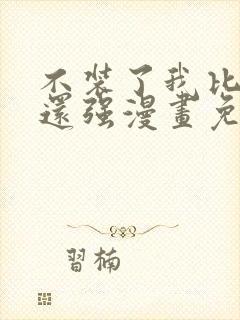 不装了我比
還强漫畫免
習楠